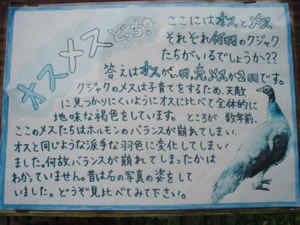 オスメスどっち?
ここにはオスとメス
それぞれ何羽のクジャク
たちがいるでしょうか??
答えはオスが 羽、メスが2羽です。
クジャクのメスは子育てをするため、天敵
に見つかりにくいようにオスに比べて全体的に
地味な褐色をしています。ところが数年前、
ここのメスたちはホルモンのバランスが崩れてしまい、
オスと同じような派手な羽色に変化してしまい
ました。何故バランスが崩れてしまったかは
わかっていません。昔は右の写真の姿をして
いました。どうぞ見比べてみて下さい。